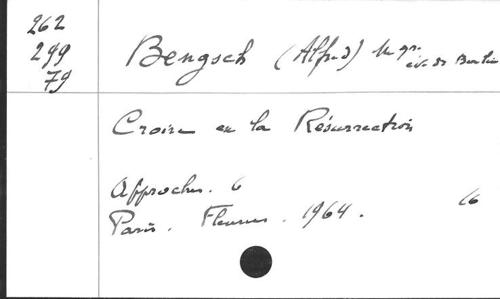 262
299
79
Bengsch (Alfred) Mgr. év. de Berlin
Croire en la Résurrection
Approches. 6
16
Paris. Fleurus. 1964.